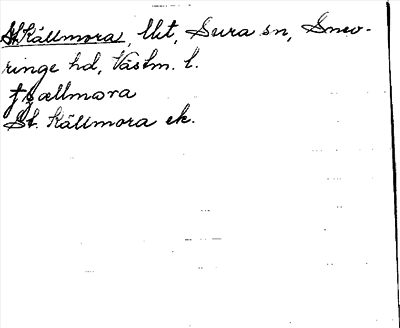 St. Källmora, lht, Sura sn, Snev-
ringe hd, Västm. l.
St. Källmora ek.